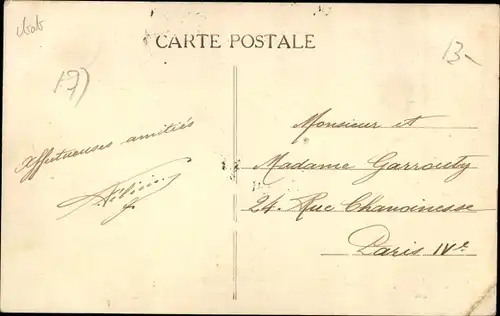 CARTE POSTALE
13-
19)
Affectueuses amitiés
Monsieur et
Madame Garrouty
24. Rue Chanoinesse
Paris IVe